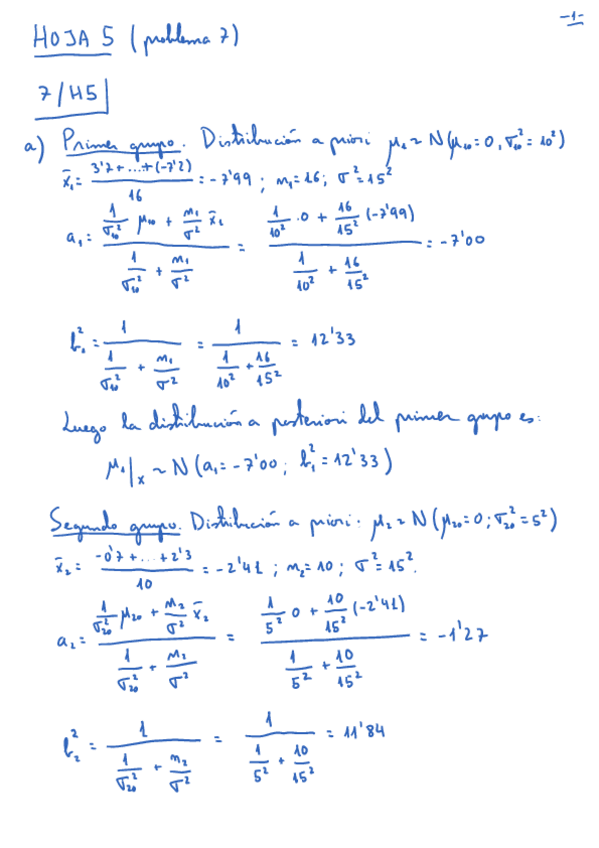 -1-
HOJA 5 (problema 7)
7/H5
a) Primer grupo. Distribución a priori μ₁ ~ N(μ₁₀=0, σ₁₀²=10²)
x̄₁ = (3'7+...+(-7'2))/16 = -7'99 ; n₁=16; σ²=15²
a₁ = (1/σ₁₀² μ₁₀ + n₁/σ² x̄₁)/(1/σ₁₀² + n₁/σ²) = (1/10² ·0 + 16/15² (-7'99))/(1/10² + 16/15²) = -7'00
b₁² = 1/(1/σ₁₀² + n₁/σ²) = 1/(1/10² + 16/15²) = 12'33
Luego la distribución a posteriori del primer grupo es:
μ₁|x ~ N(a₁=-7'00; b₁²=12'33)
Segundo grupo. Distribución a priori: μ₂ ~ N(μ₂₀=0; σ₂₀²=5²)
x̄₂ = (-0'7+...+2'3)/10 = -2'41 ; n₂=10; σ²=15².
a₂ = (1/σ₂₀² μ₂₀ + n₂/σ² x̄₂)/(1/σ₂₀² + n₂/σ²) = (1/5² 0 + 10/15² (-2'41))/(1/5² + 10/15²) = -1'27
b₂² = 1/(1/σ₂₀² + n₂/σ²) = 1/(1/5² + 10/15²) = 11'84